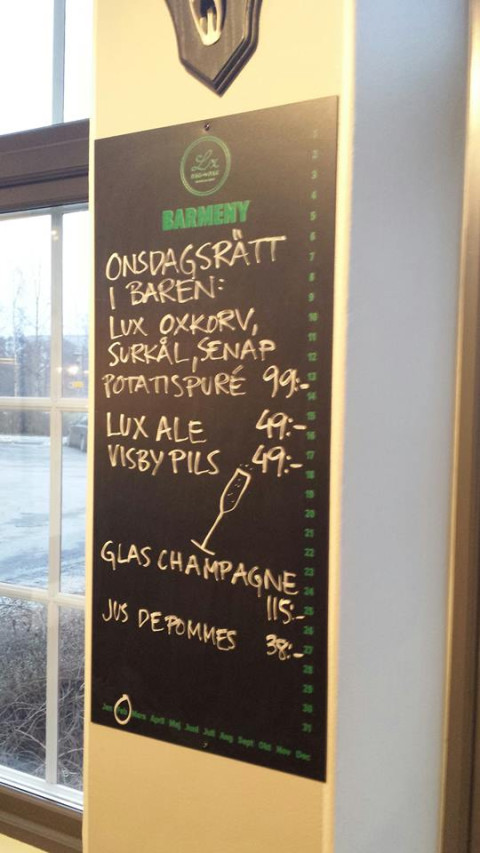 Lx
BARMENY
ONSDAGSRÄTT
I BAREN:
LUX OXKORV,
SURKÅL, SENAP
POTATISPURÉ 99:-
LUX ALE 49:-
VISBY PILS 49:-
GLAS CHAMPAGNE
115:-
JUS DE POMMES 38:-
Jan Feb Mars April Maj Juni Juli Aug Sept Okt Nov Dec
1
2
3
4
5
6
7
8
9
10
11
12
13
14
15
16
17
18
19
20
21
22
23
24
25
26
27
28
29
30
31